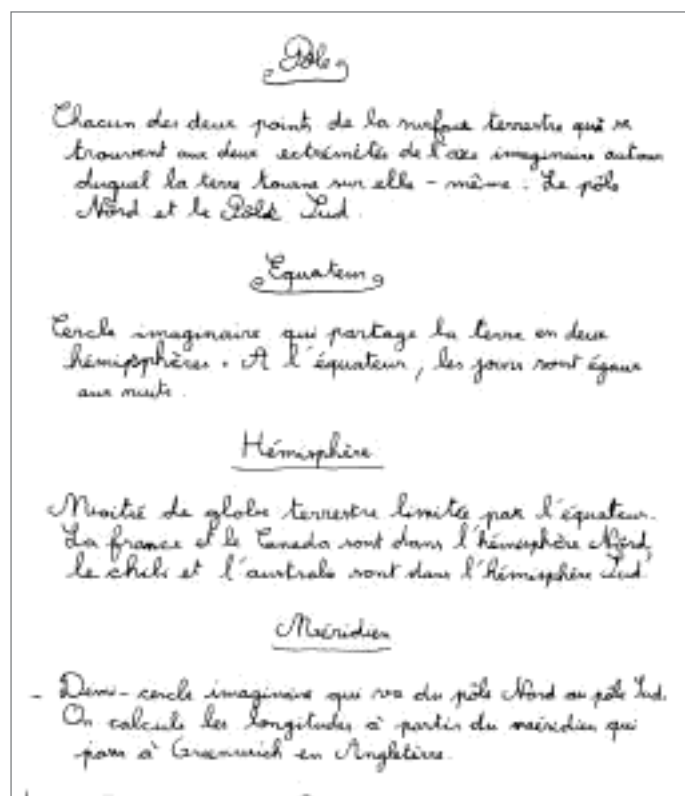 Pôle
Chacun des deux point de la surface terrestre qui se
trouvent aux deux extrémités de l'axe imaginaire autour
duquel la terre tourne sur elle-même : Le pôle
Nord et le Pôle Sud.
Equateur
Cercle imaginaire qui partage la terre en deux
hémisphères. A l'équateur, les jours sont égaux
aux nuits.
Hémisphère
Moitié de globe terrestre limitée par l'équateur.
La france et le Canada sont dans l'hémisphère Nord,
le chili et l'australe sont dans l'hémisphère Sud.
Méridien
- Demi-cercle imaginaire qui va du pôle Nord au pôle Sud.
On calcule les longitudes à partir du méridien qui
pass à Greenwich en Angleterre.